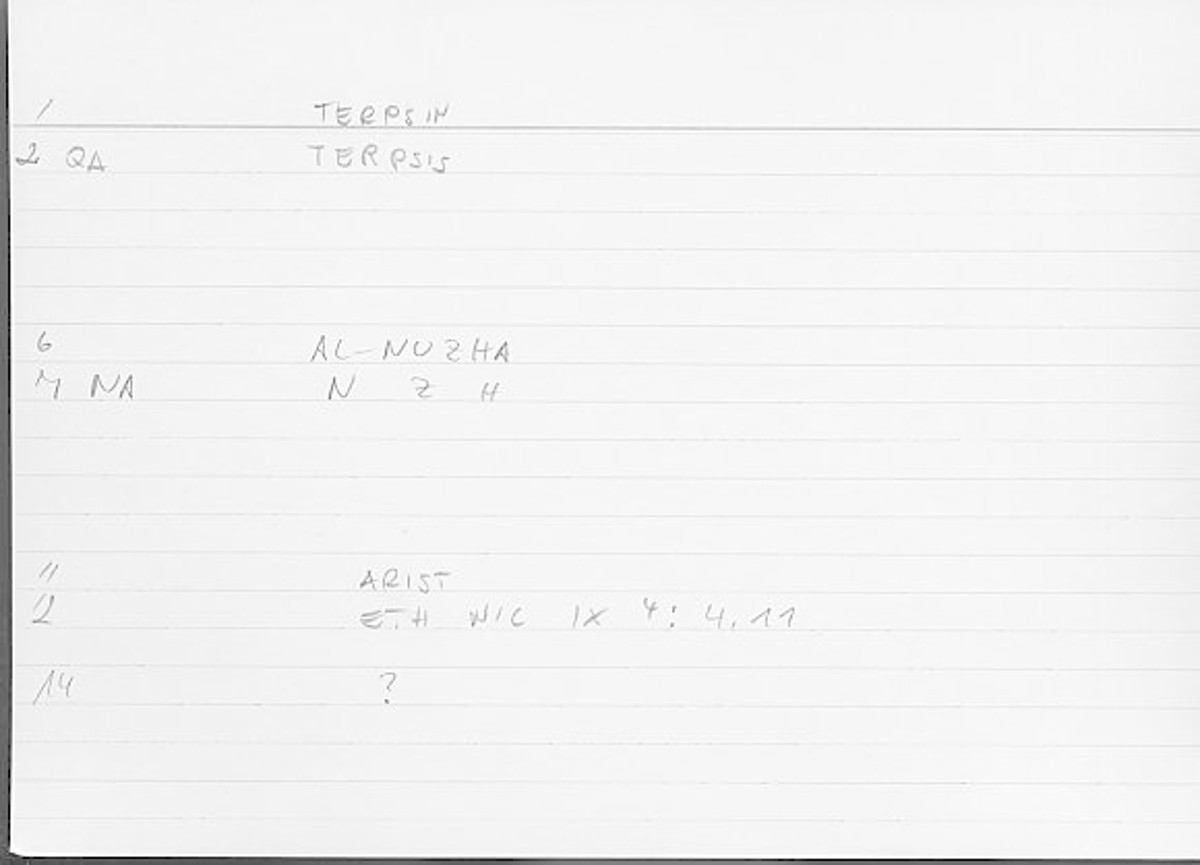 1 TERPSIN
2 QA TERPSIS
6 AL-NUZHA
7 NA N Z H
11 ARIST
12 ETH NIC IX 4: 4.11
14 ?